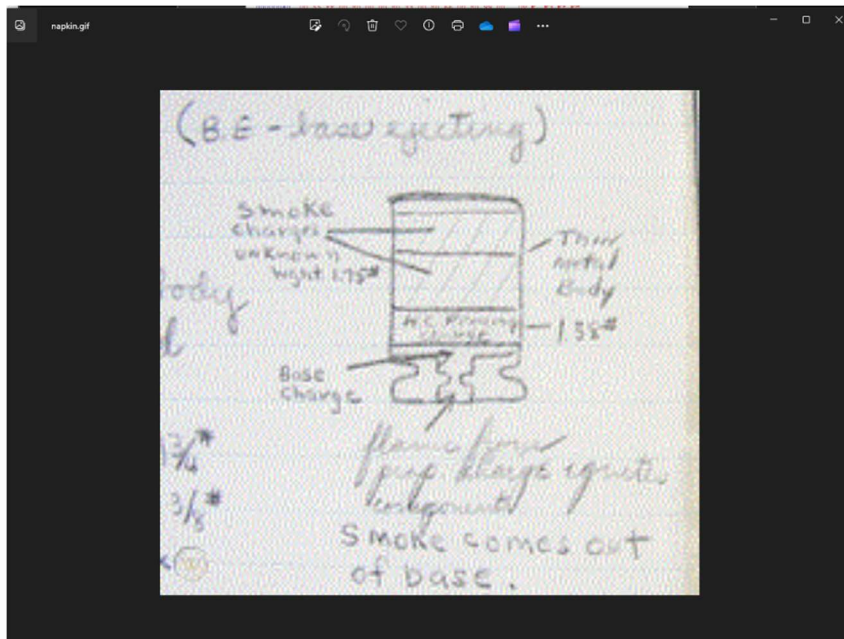 napkin.gif
(B.E - base ejecting)
Smoke
charges
unknown
wght 1.75#
Thin
Metal
Body
body
H.C. Priming
Charge
1.38#
Base
Charge
3/4#
3/8#
flame from
prop. charge ignites
components
Smoke comes out
of base.